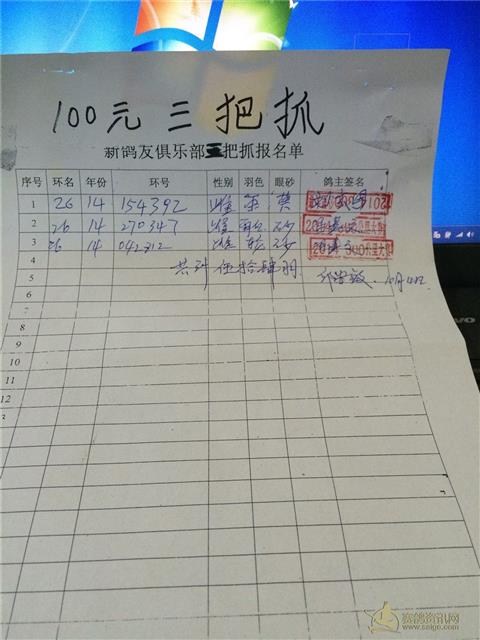 100元三把抓
新鸽友俱乐部三把抓报名单
序号 环名 年份 环号 性别 羽色 眼砂 鸽主签名
1 26 14 154392 雌 黄
2 26 14 270347 雌 砂
3 26 14 042212 雌 砂
4 共计伍拾肆羽
5 10月4日
6
7
8
9
10
11
12
赛鸽资讯网
www.saige.com